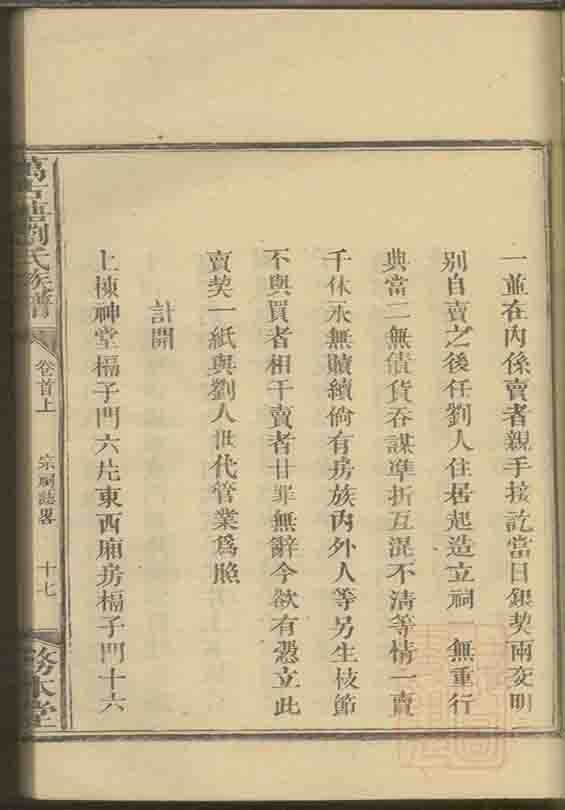 一並在內係賣者親手接訖當日銀契兩交明
別自賣之後任劉人住居起造立祠　無重行
典當二無債貨吞謀準折互混不清等情一賣
千休永無贖續倘有房族內外人等另生枝節
不與買者相干賣者甘罪無辭今欲有憑立此
賣契一紙與劉人世代管業爲照
信開
上棟神堂槅子門六片東西廂房槅子門十六
劉氏族譜
卷首上
宗祠誌畧
十七
務本堂